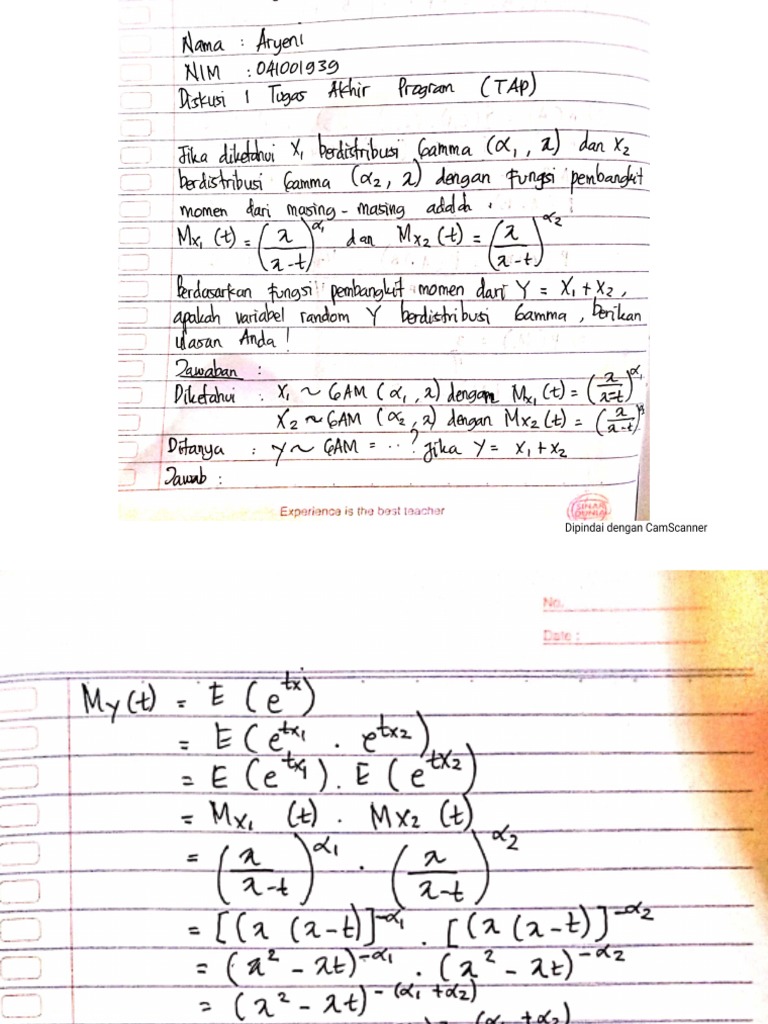 Nama : Aryeni
NIM : 041001939
Diskusi 1 Tugas Akhir Program (TAP)
Jika diketahui X₁ berdistribusi Gamma (α₁, λ) dan X₂
berdistribusi Gamma (α₂, λ) dengan fungsi pembangkit
momen dari masing-masing adalah.
Mx₁ (t) = (λ/(λ-t))^α₁ dan Mx₂ (t) = (λ/(λ-t))^α₂
Berdasarkan fungsi pembangkit momen dari Y = X₁ + X₂,
apakah variabel random Y berdistribusi Gamma, berikan
ulasan Anda!
Jawaban :
Diketahui : X₁ ~ GAM (α₁, λ) dengan Mx₁(t) = (λ/(λ-t))^α₁
X₂ ~ GAM (α₂, λ) dengan Mx₂(t) = (λ/(λ-t))
Ditanya : Y ~ GAM = ...? Jika Y = X₁ + X₂
Jawab :
Experience is the best teacher
SINAR DUNIA
Dipindai dengan CamScanner
No.
Date :
My(t) = E (e^tx)
= E (e^tx₁ . e^tx₂)
= E (e^tx₁) . E (e^tx₂)
= Mx₁ (t) . Mx₂ (t)
= (λ/(λ-t))^α₁ . (λ/(λ-t))^α₂
= [(λ (λ-t)]^-α₁ . [(λ (λ-t)]^-α₂
= (λ² - λt)^-α₁ . (λ² - λt)^-α₂
= (λ² - λt)^-(α₁ + α₂)
(α₁ + α₂)